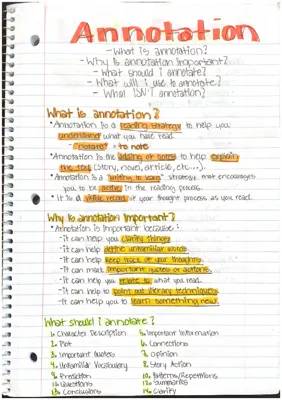 Annotation
- What is annotation?
- Why is annotation important?
- What should I annotate?
- What will I use to annotate?
- What ISN'T annotation?
What is annotation?
• Annotation is a reading strategy to help you
understand what you have read.
- "notate" = to note
• Annotation is the adding of notes to help explain
the text (story, novel, article, etc...).
• Annotation is a "writing to learn" strategy that encourages
you to be active in the reading process.
• It is a visible record of your thought process as you read.
Why is annotation important?
• Annotation is important because:
- It can help you clarify things.
- It can help define unfamiliar words.
- It can help keep track of your thoughts.
- It can mark important quotes or actions.
- It can help you relate to what you read.
- It can help to point out literary techniques.
- It can help you to learn something new.
What should I annotate?
1. Character Description
2. Plot
3. Important Quotes
4. Unfamiliar Vocabulary
9. Prediction
11. Questions
13. Conclusions
5. Important Information
6. Connections
7. Opinion
8. Story Action
10. Patterns/Repetitions
12. Summaries
14. Clarify